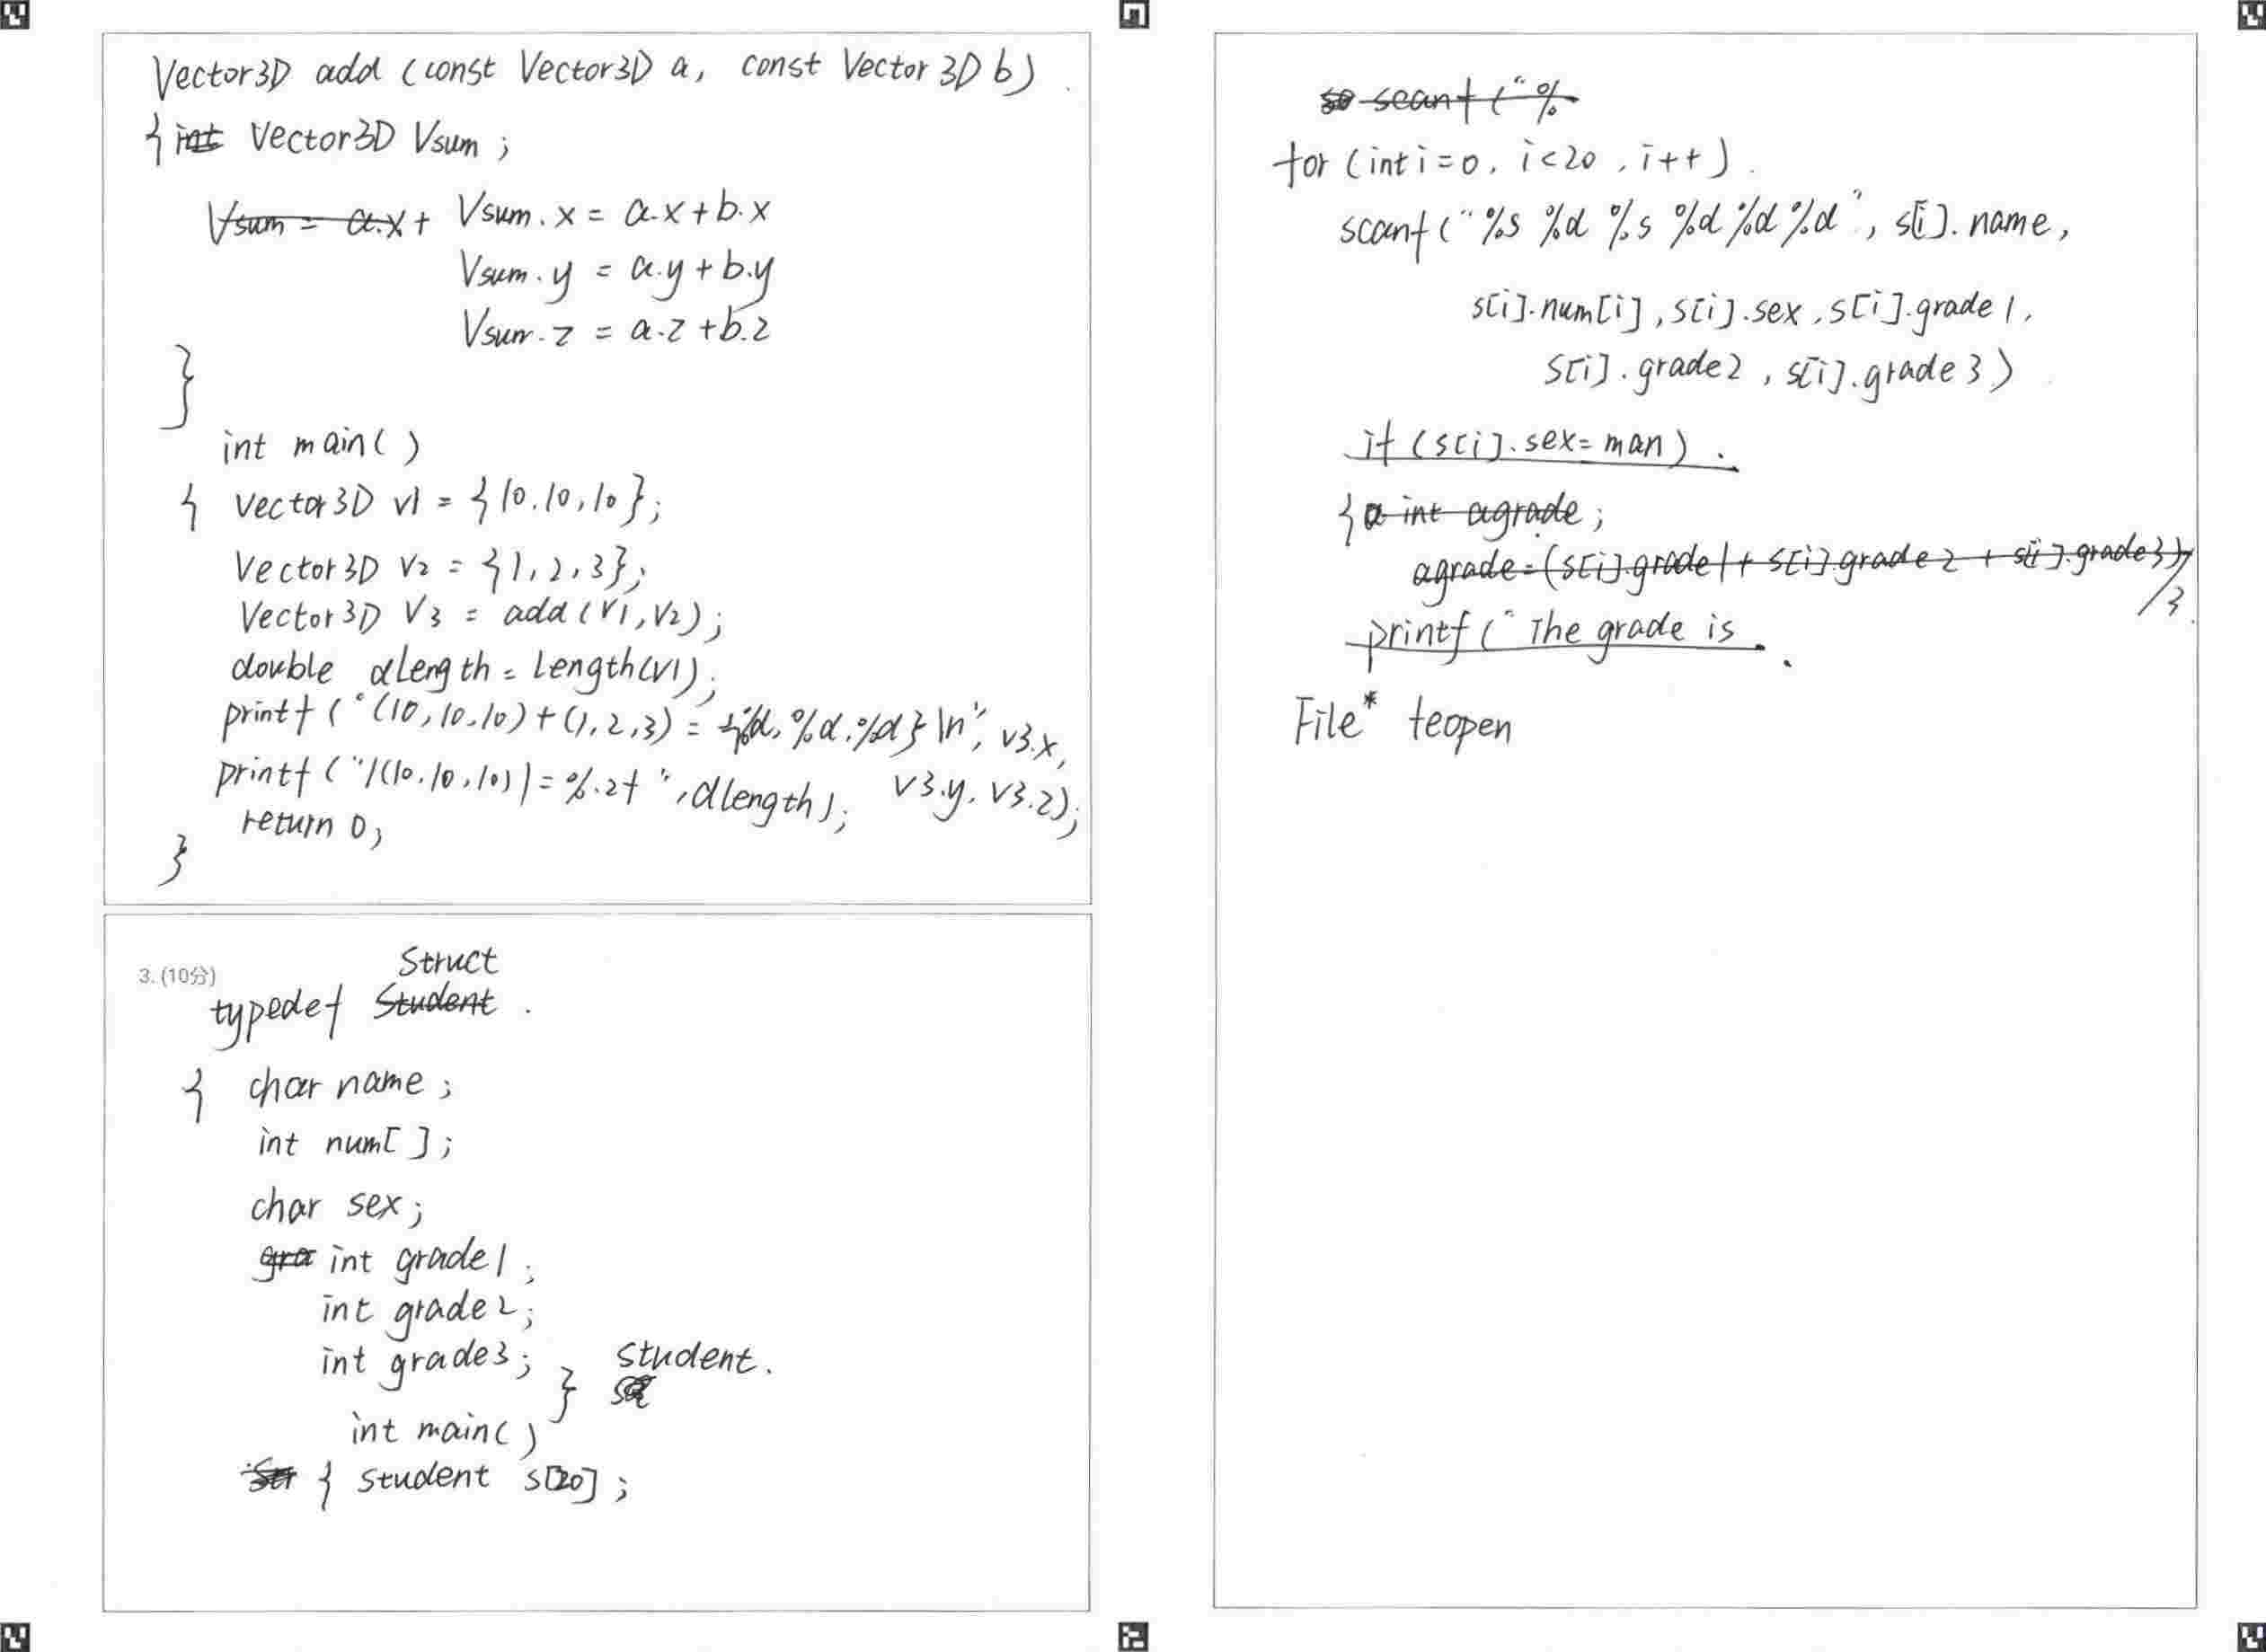 Vector3D add (const Vector3D a, const Vector3D b)
{ int Vector3D Vsum ;
Vsum = a.x + Vsum.x = a.x+b.x
Vsum.y = a.y+b.y
Vsum.z = a.z+b.z
}
int main( )
{ Vector3D v1 = {10.10,10};
Vector3D v2 = {1,2,3};
Vector3D v3 = add(v1,v2);
double dLength = Length(v1);
printf ("(10,10,10)+(1,2,3) = {%d, %d.%d}\n", v3.x,
v3.y, v3.z);
printf ("|(10,10,10)|=%.2f ", dlength);
return 0;
}
3. (10分)
Struct
typedef Student .
{ char name ;
int num[ ];
char sex;
gra int grade1 ;
int grade2;
int grade3;
} student.
int main( )
Str { student s[20] ;
so scanf ("%
for (int i=0, i<20 , i++) .
scanf ("%s %d %s %d %d %d", s[i].name,
s[i].num[i], s[i].sex, s[i].grade1,
s[i].grade2, s[i].grade3)
if (s[i].sex= man) .
{ a int agrade ;
agrade=(s[i].grade1+ s[i].grade2 + s[i].grade3)
/3.
printf (" The grade is .
File* feopen